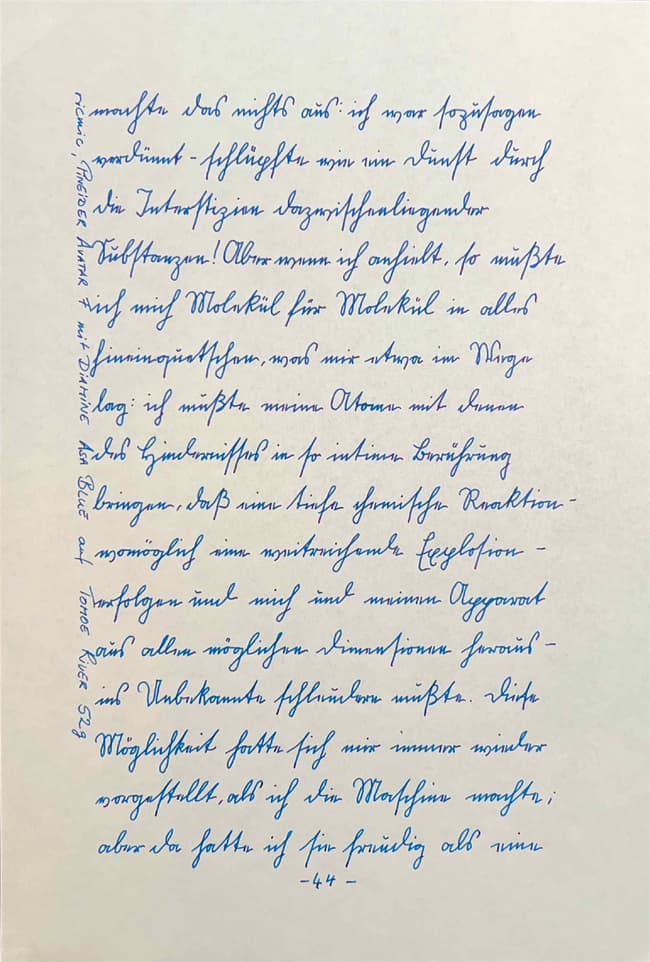 machte das nichts aus: ich war sozusagen
verdünnt - schlüpfte wie ein Dunst durch
die Interstizien dazwischenliegender
Substanzen! Aber wenn ich anhielt, so mußte
ich mich Molekül für Molekül in alles
hineinquetschen, was mir etwa im Wege
lag: ich mußte meine Atome mit denen
des Hindernisses in so intime Berührung
bringen, daß eine tiefe chemische Reaktion -
womöglich eine weitreichende Explosion -
erfolgen und mich und meinen Apparat
aus allen möglichen Dimensionen heraus -
ins Unbekannte schleudern mußte. Diese
Möglichkeit hatte sich mir immer wieder
vorgestellt, als ich die Maschine machte;
aber da hatte ich sie freudig als eine
- 44 -
ricmic, PINEIDER AVATAR F mit DIAMINE ASA BLUE auf TOMOE RIVER 52g